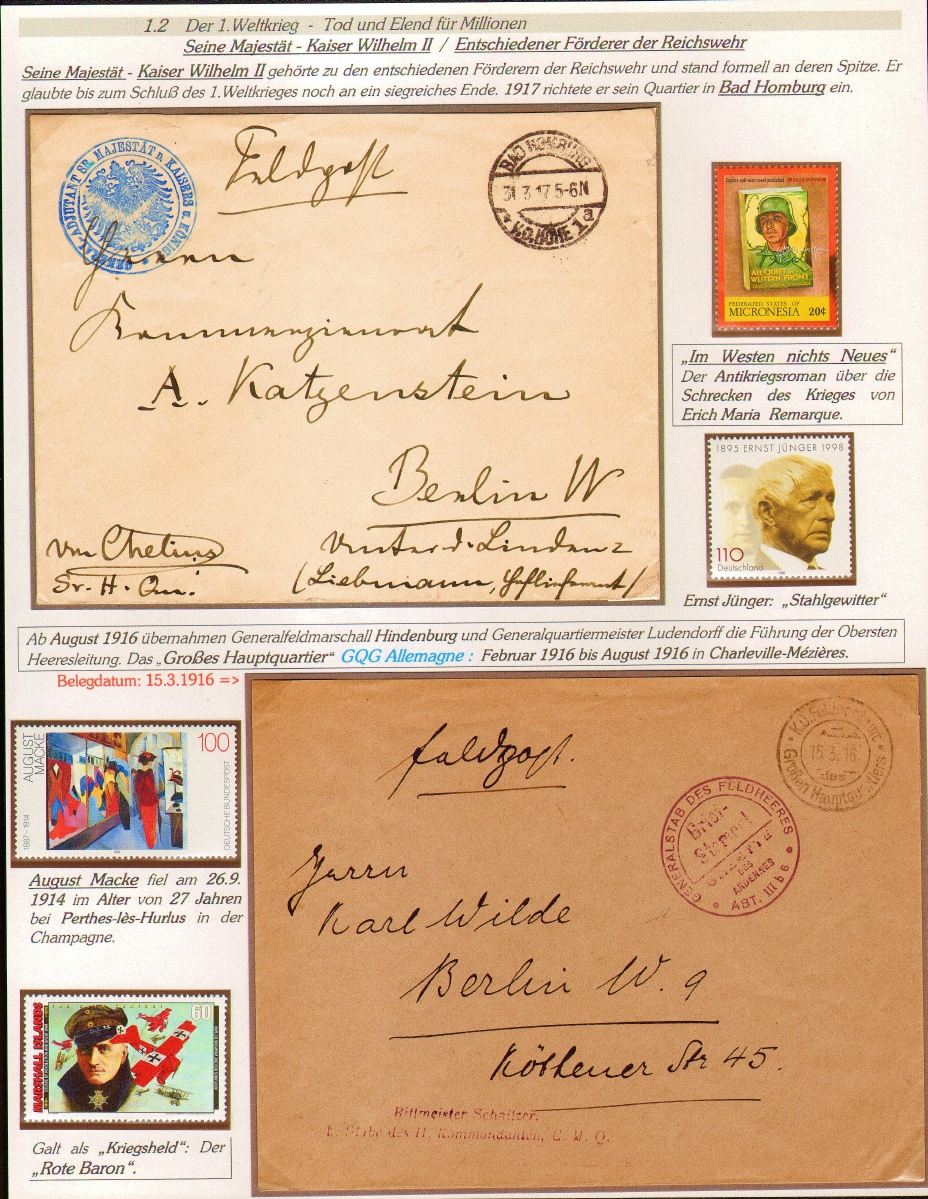 1.2 Der 1.Weltkrieg - Tod und Elend für Millionen
Seine Majestät - Kaiser Wilhelm II / Entschiedener Förderer der Reichswehr
Seine Majestät - Kaiser Wilhelm II gehörte zu den entschiedenen Förderern der Reichswehr und stand formell an deren Spitze. Er
glaubte bis zum Schluß des 1.Weltkrieges noch an ein siegreiches Ende. 1917 richtete er sein Quartier in Bad Homburg ein.
ADJUTANT SR. MAJESTÄT D. KAISERS U. KÖNIGS
Feldpost
BAD HOMBURG
31.3.17.5-6N
V.D.HÖHE 1a
Herrn
Kommerzienrat
A. Katzenstein
Berlin W
Unter d. Linden 2
(Liebmann, Hoflieferant)
von Chelius
ALL QUIET ON THE
WESTERN FRONT
FEDERATED STATES OF
MICRONESIA 20¢
„Im Westen nichts Neues“
Der Antikriegsroman über die
Schrecken des Krieges von
Erich Maria Remarque.
1895 ERNST JÜNGER 1998
110
Deutschland
Ernst Jünger: „Stahlgewitter“
Ab August 1916 übernahmen Generalfeldmarschall Hindenburg und Generalquartiermeister Ludendorff die Führung der Obersten
Heeresleitung. Das „Großes Hauptquartier“ GQG Allemagne : Februar 1916 bis August 1916 in Charleville-Mézières.
Belegdatum: 15.3.1916 =>
AUGUST
MACKE
1887-1914
100
DEUTSCHE BUNDESPOST
August Macke fiel am 26.9.
1914 im Alter von 27 Jahren
bei Perthes-lès-Hurlus in der
Champagne.
MARSHALL ISLANDS
60
Galt als „Kriegsheld“: Der
„Rote Baron“.
Feldpost.
15.3.16
des
Großen Hauptquartiers
GENERALSTAB DES FELDHEERES
Brief-
Stempel
DES
ARDENNES
ABT. III b
Herrn
Karl Wilde
Berlin W. 9
Köthener Str 45.
Rittmeister Schnitzer.
b. Stabe des II. Kommandanten, G. H. Q.